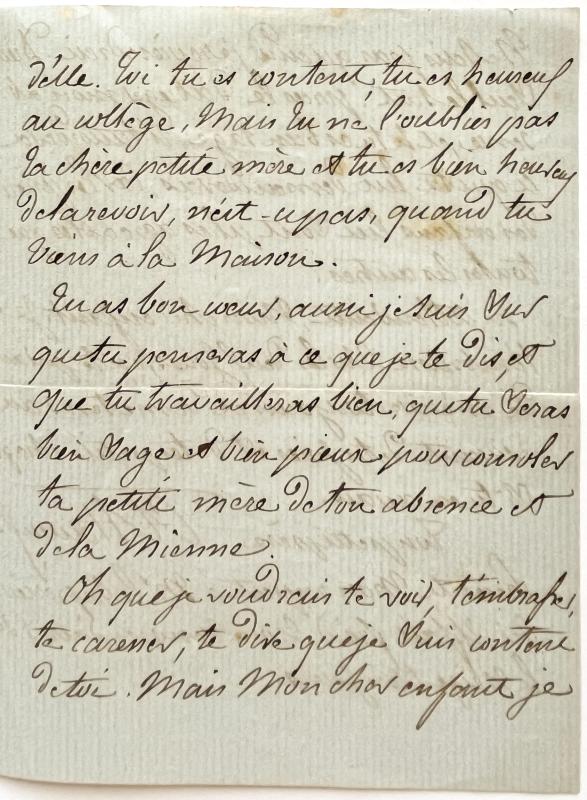 d'elle. Toi tu es content, tu es heureux
au collège, Mais tu ne l'oublies pas
ta chère petite mère et tu es bien heureux
de la revoir, n'est-ce pas, quand tu
viens à la Maison.
Tu as bon cœur, aussi je suis Sur
que tu penseras à ce que je te dis, et
que tu travailleras bien, que tu Seras
bien Sage et bien pieux pour consoler
ta petite mère de ton absence et
de la Mienne.
Oh que je voudrais te voir, t'embrasser,
te caresser, te dire que je Suis content
de toi. Mais Mon cher enfant je